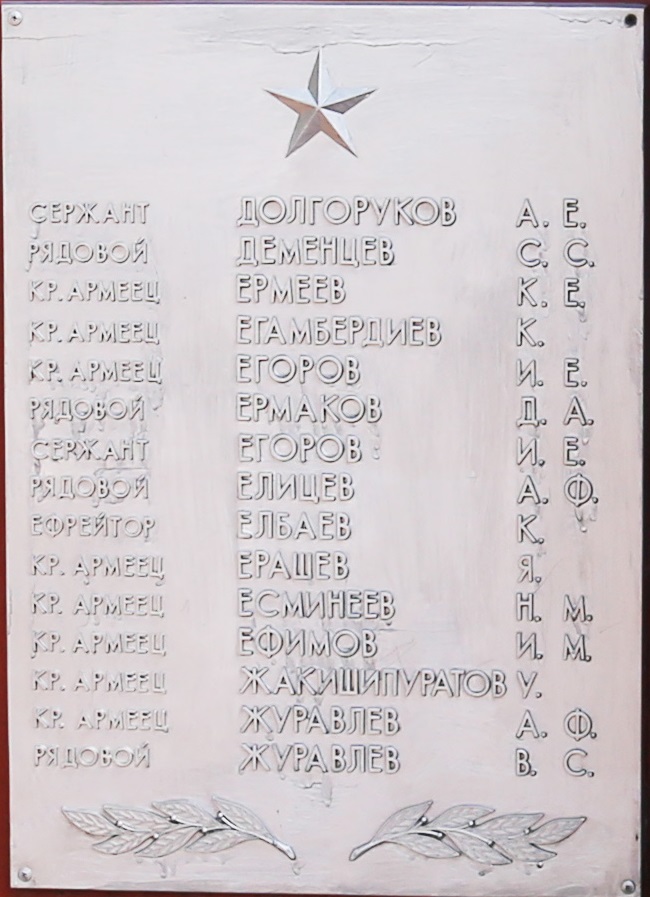 СЕРЖАНТ ДОЛГОРУКОВ А. Е.
РЯДОВОЙ ДЕМЕНЦЕВ С. С.
КР. АРМЕЕЦ ЕРМЕЕВ К. Е.
КР. АРМЕЕЦ ЕГАМБЕРДИЕВ К.
КР. АРМЕЕЦ ЕГОРОВ И. Е.
РЯДОВОЙ ЕРМАКОВ Д. А.
СЕРЖАНТ ЕГОРОВ И. Е.
РЯДОВОЙ ЕЛИЦЕВ А. Ф.
ЕФРЕЙТОР ЕЛБАЕВ К.
КР. АРМЕЕЦ ЕРАЩЕВ Я.
КР. АРМЕЕЦ ЕСМИНЕЕВ Н. М.
КР. АРМЕЕЦ ЕФИМОВ И. М.
КР. АРМЕЕЦ ЖАКИШИПУРАТОВ У.
КР. АРМЕЕЦ ЖУРАВЛЕВ А. Ф.
РЯДОВОЙ ЖУРАВЛЕВ В. С.